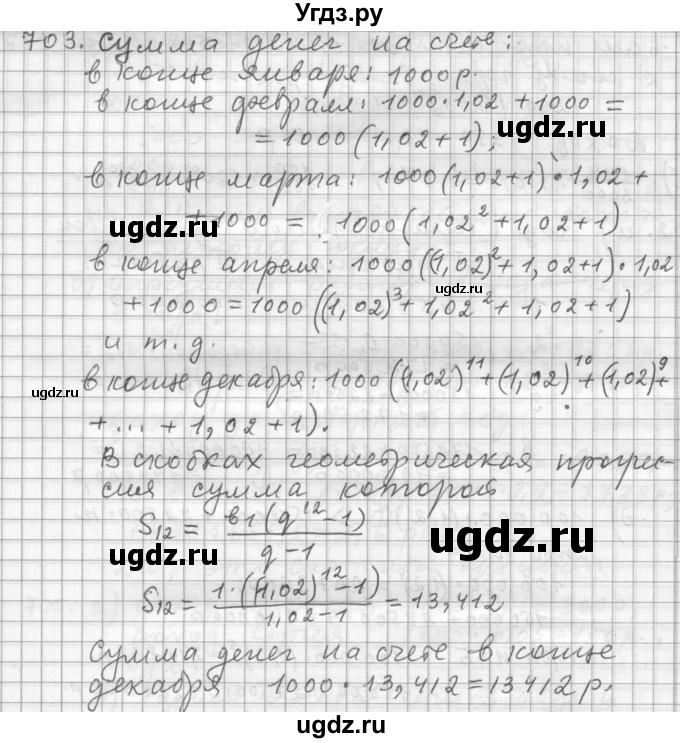 Угдз.ру
703. Сумма денег на счете:
в конце января: 1000 р.
в конце февраля: 1000·1,02 + 1000 =
= 1000 (1,02+1);
ugdz.ru
в конце марта: 1000(1,02+1)·1,02 +
+1000 = 1000(1,02²+1,02+1)
ugdz.ru
в конце апреля: 1000((1,02)²+1,02+1)·1,02
+1000=1000((1,02)³+1,02²+1,02+1)
и т.д.
в конце декабря: 1000((1,02)¹¹+(1,02)¹⁰+(1,02)⁹+
ugdz.ru
+...+1,02+1).
В скобках геометрическая прогрес-
сия сумма которой
S₁₂ = в₁(q¹²-1)/q-1
ugdz.ru
ugdz.ru
S₁₂ = 1·((1,02)¹²-1)/1,02-1 = 13,412
Сумма денег на счете в конце
декабря 1000·13,412=13412 р.
ugdz.ru
ugdz.ru